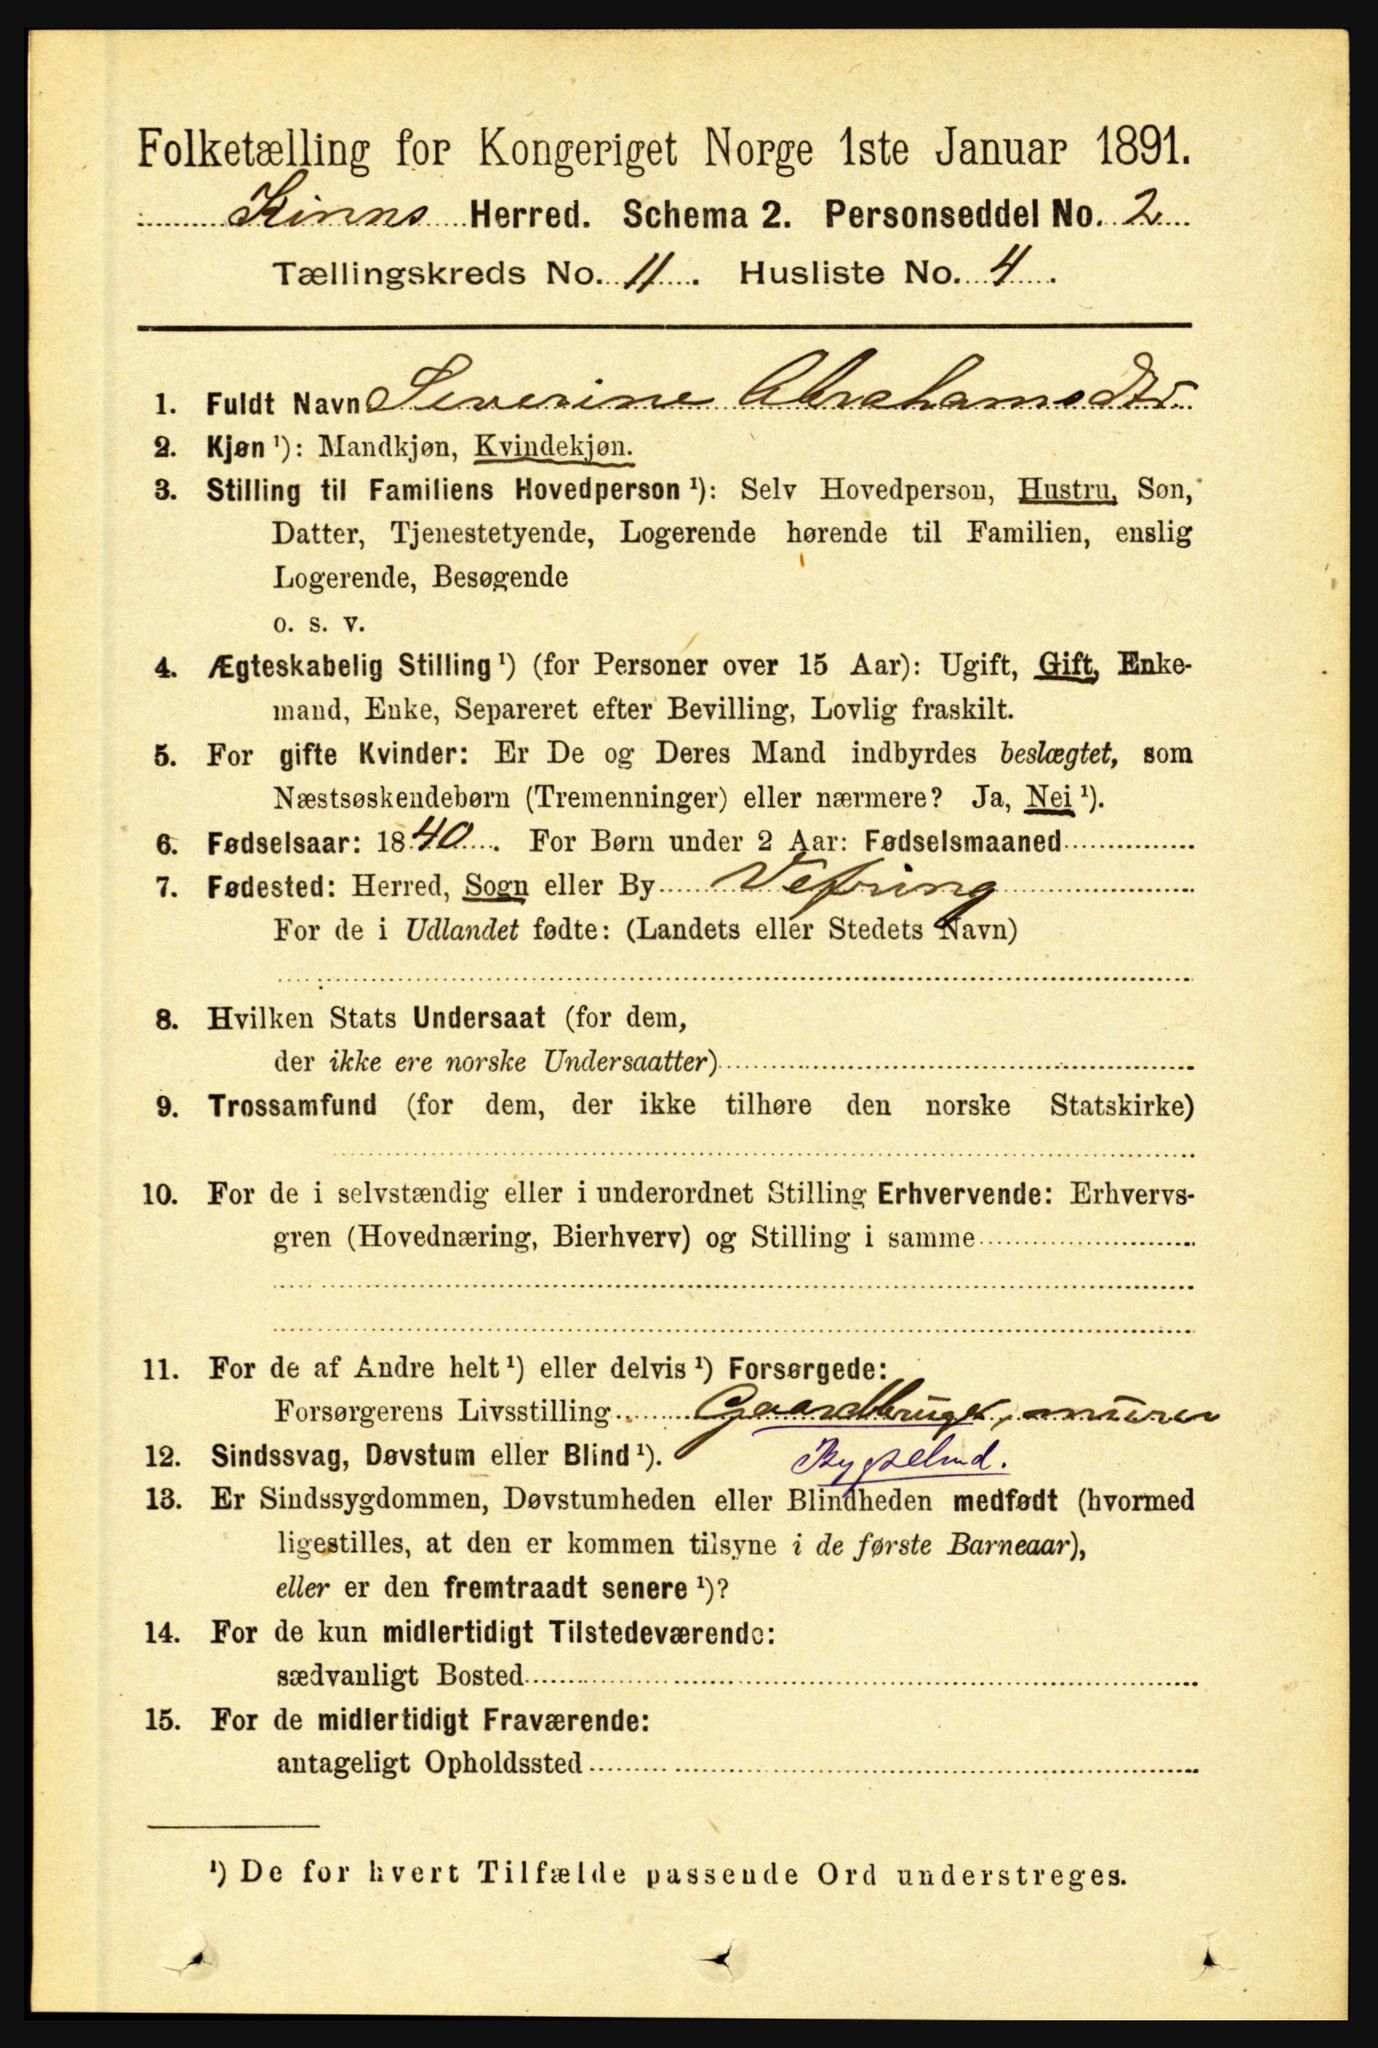 Folketælling for Kongeriget Norge 1ste Januar 1891.
Kinns Herred. Schema 2. Personseddel No. 2
Tællingskreds No. 11. Husliste No. 4.
1. Fuldt Navn Severine Abrahamsdtr
2. Kjøn ¹): Mandkjøn, Kvindekjøn.
3. Stilling til Familiens Hovedperson ¹): Selv Hovedperson, Hustru, Søn,
Datter, Tjenestetyende, Logerende hørende til Familien, enslig
Logerende, Besøgende
o. s. v.
4. Ægteskabelig Stilling ¹) (for Personer over 15 Aar): Ugift, Gift, Enke-
mand, Enke, Separeret efter Bevilling, Lovlig fraskilt.
5. For gifte Kvinder: Er De og Deres Mand indbyrdes beslægtet, som
Næstsøskendebørn (Tremenninger) eller nærmere? Ja, Nei ¹).
6. Fødselsaar: 1840. For Børn under 2 Aar: Fødselsmaaned
7. Fødested: Herred, Sogn eller By Vefring
For de i Udlandet fødte: (Landets eller Stedets Navn)
8. Hvilken Stats Undersaat (for dem,
der ikke ere norske Undersaatter)
9. Trossamfund (for dem, der ikke tilhøre den norske Statskirke)
10. For de i selvstændig eller i underordnet Stilling Erhvervende: Erhvervs-
gren (Hovednæring, Bierhverv) og Stilling i samme
11. For de af Andre helt ¹) eller delvis ¹) Forsørgede:
Forsørgerens Livsstilling Gaardbruger, murer
12. Sindssvag, Døvstum eller Blind ¹). Bygselmd.
13. Er Sindssygdommen, Døvstumheden eller Blindheden medfødt (hvormed
ligestilles, at den er kommen tilsyne i de første Barneaar),
eller er den fremtraadt senere ¹)?
14. For de kun midlertidigt Tilstedeværende:
sædvanligt Bosted
15. For de midlertidigt Fraværende:
antageligt Opholdssted
¹) De for hvert Tilfælde passende Ord understreges.